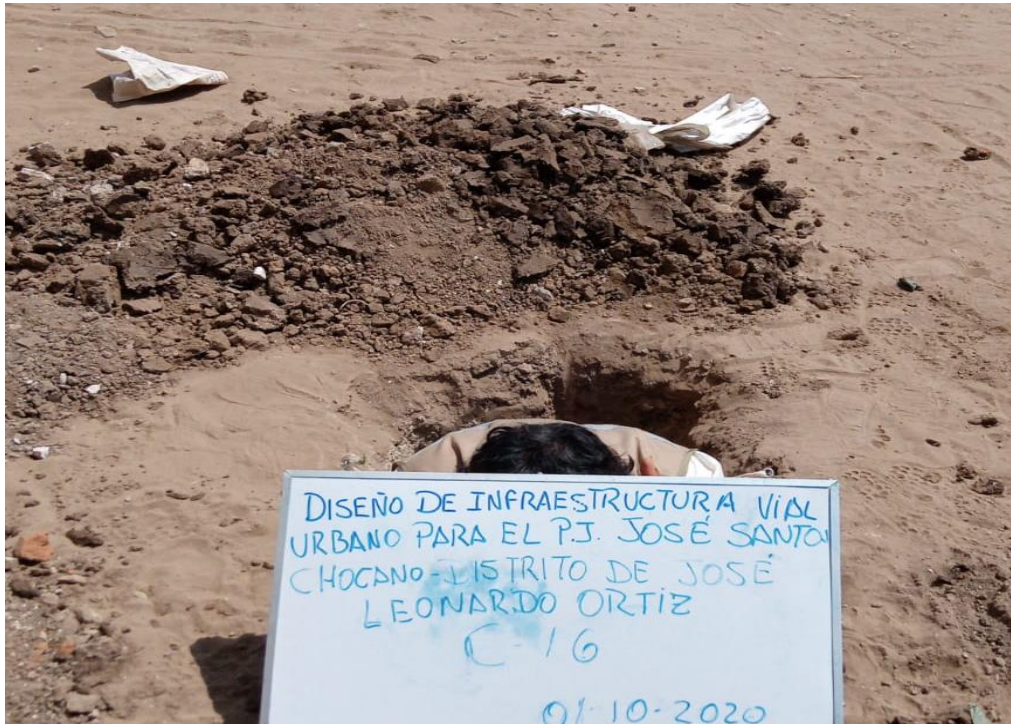 DISEÑO DE INFRAESTRUCTURA VIAL
URBANO PARA EL P.J. JOSÉ SANTOS
CHOCANO - DISTRITO DE JOSÉ
LEONARDO ORTIZ
C-16
01-10-2020